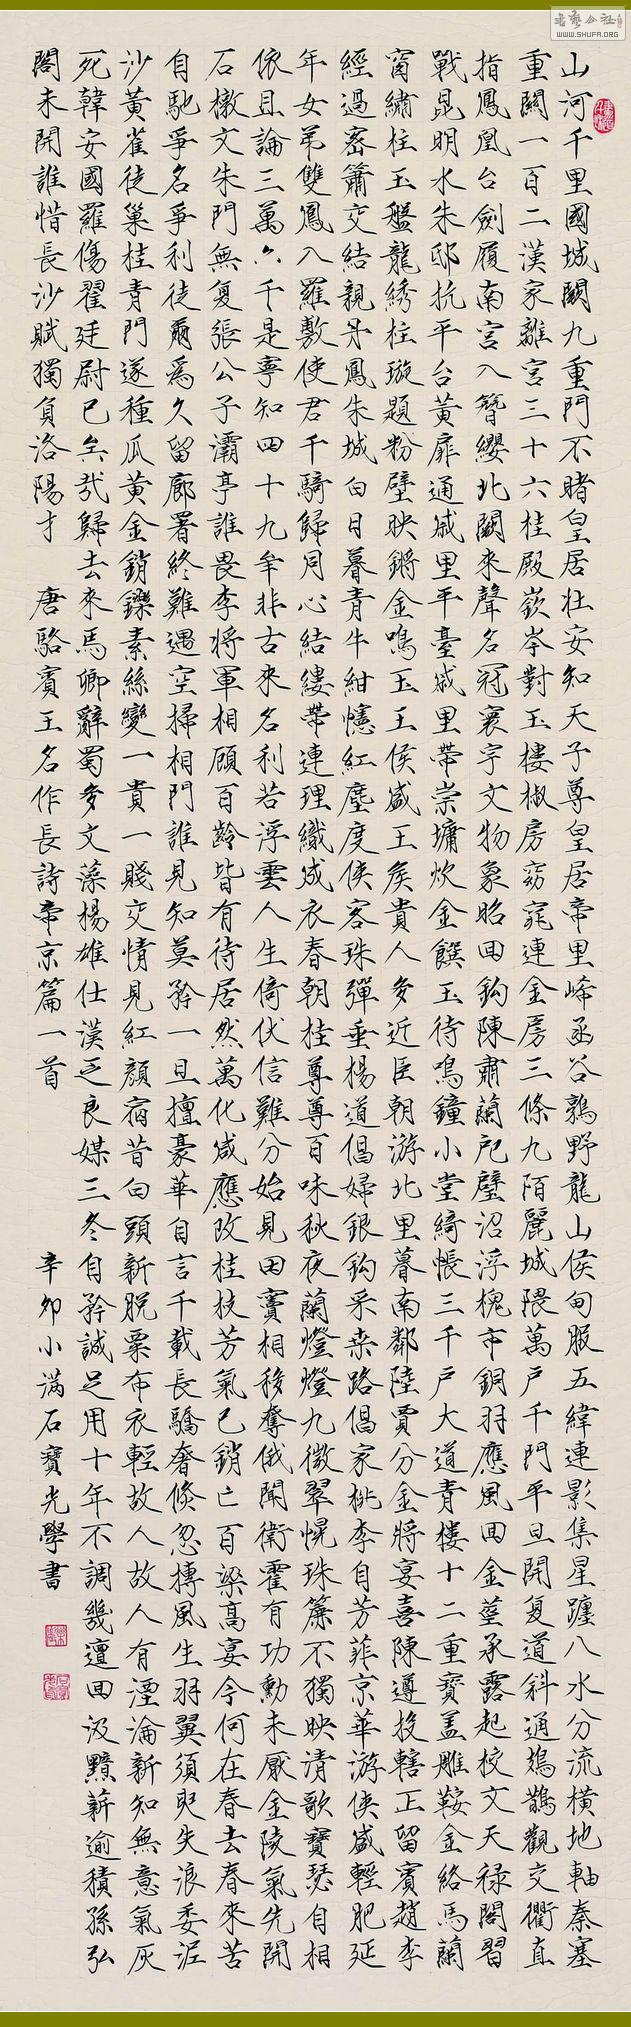 山河千里國城闕九重門不睹皇居壯安知天子尊皇居帝里崤函谷鶉野龍山侯甸服五緯連影集星躔八水分流橫地軸秦塞
重關一百二漢家離宮三十六桂殿嶔岑對玉樓椒房窈窕連金房三條九陌麗城隈萬戶千門平旦開复道斜通鳷鵲觀交衢直
指鳳凰台劍履南宮入簪纓北闕來聲名冠寰宇文物象昭回鈎陳肅蘭戺璧沼浮槐市銅羽應風回金莖承露起校文天祿閣習
戰昆明水朱邸抗平台黃扉通戚里平臺戚里帶崇墉炊金饌玉待鳴鐘小堂綺帳三千戶大道青樓十二重寶蓋雕鞍金絡馬蘭
窗繡柱玉盤龍綉柱璇題粉壁映鏘金鳴玉王侯盛王侯貴人多近臣朝游北里暮南鄰陸賈分金將宴喜陳遵投轄正留賓趙李
經過密簫交結親丹鳳朱城白日暮青牛紺幰紅塵度俠客珠彈垂楊道倡婦銀鈎采桑路倡家桃李自芳菲京華游俠盛輕肥延
年女弟雙鳳入羅敷使君千騎歸同心結縷帶連理織成衣春朝桂尊尊百味秋夜蘭燈燈九微翠幌珠簾不獨映清歌寶瑟自相
依且論三萬六千是寧知四十九年非古來名利若浮雲人生倚伏信難分始見田竇相移奪俄聞衛霍有功勳未厭金陵氣先開
石槨文朱門無复張公子灞亭誰畏李將軍相顧百齡皆有待居然萬化咸應改桂枝芳氣已銷亡百梁高宴今何在春去春來苦
自馳爭名爭利徒爾為久留廊署終難遇空掃相門誰見知莫矜一旦擅豪華自言千載長驕奢倏忽摶風生羽翼須臾失浪委泥
沙黃雀徒巢桂青門遂種瓜黃金銷鑠素絲變一貴一賤交情見紅顏宿昔白頭新脫粟布衣輕故人故人有湮淪新知無意氣灰
死韓安國羅傷翟廷尉已矣哉歸去來馬卿辭蜀多文藻楊雄仕漢乏良媒三冬自矜誠足用十年不調幾邅回汲黯薪逾積孫弘
閣未開誰惜長沙賦獨負洛陽才 唐駱賓王名作長詩帝京篇一首 辛卯小满石寶光學書
WWW.SHUFA.ORG